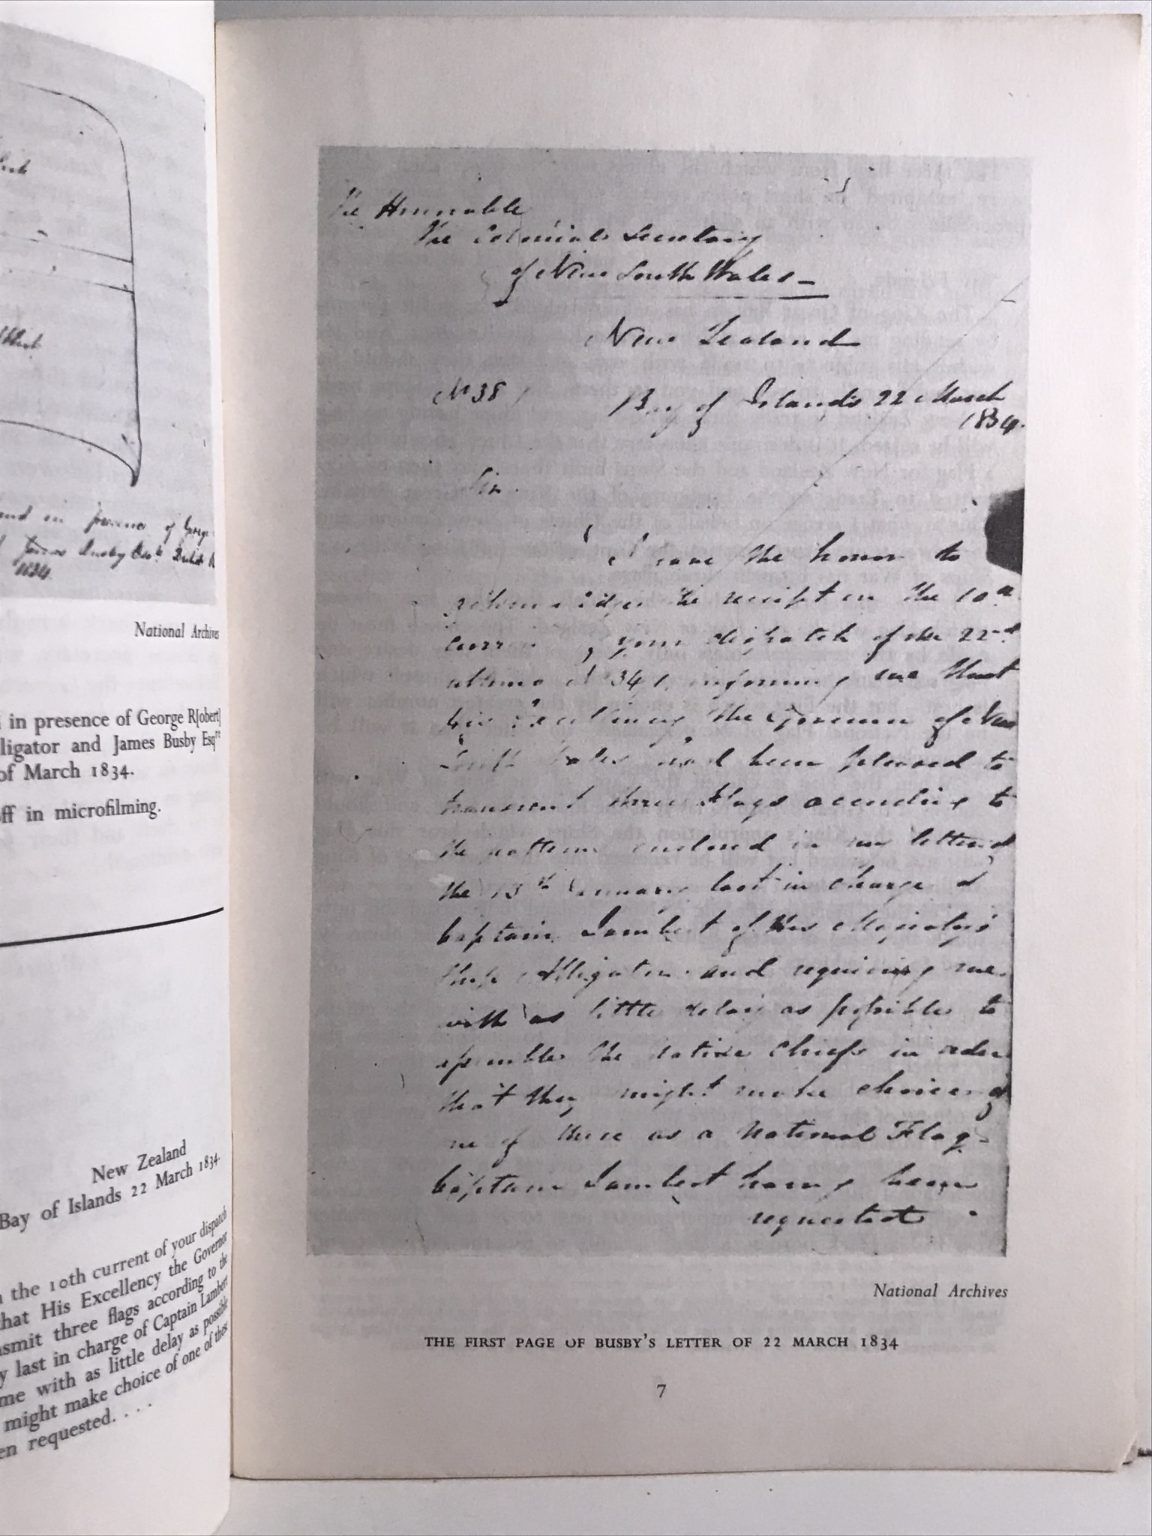 and in presence of George
James Busby Esq.
1834.
National Archives
in presence of George R[obert]
ligator and James Busby Esqre
of March 1834.
ff in microfilming.
New Zealand
Bay of Islands 22 March 1834.
the 10th current of your dispatch
hat His Excellency the Governor
nsmit three flags according to the
y last in charge of Captain Lambert
me with as little delay as possible
might make choice of one of these
en requested. . . .
The Honorable
The Colonial Secretary
of New South Wales -
New Zealand
No 38
Bay of Islands 22 March
1834.
Sir
I have the honor to
acknowledge the receipt on the 10th
current of your dispatch of the 22nd
ultimo informing me that
His Excellency the Governor of New
South Wales had been pleased to
transmit three flags according to
the pattern enclosed in my letter of
the 13th January last in charge of
Captain Lambert of His Majesty's
Ship Alligator and requiring me
with as little delay as possible to
assemble the native Chiefs in order
that they might make choice of
one of these as a National Flag -
Captain Lambert having been
requested
National Archives
THE FIRST PAGE OF BUSBY'S LETTER OF 22 MARCH 1834
7